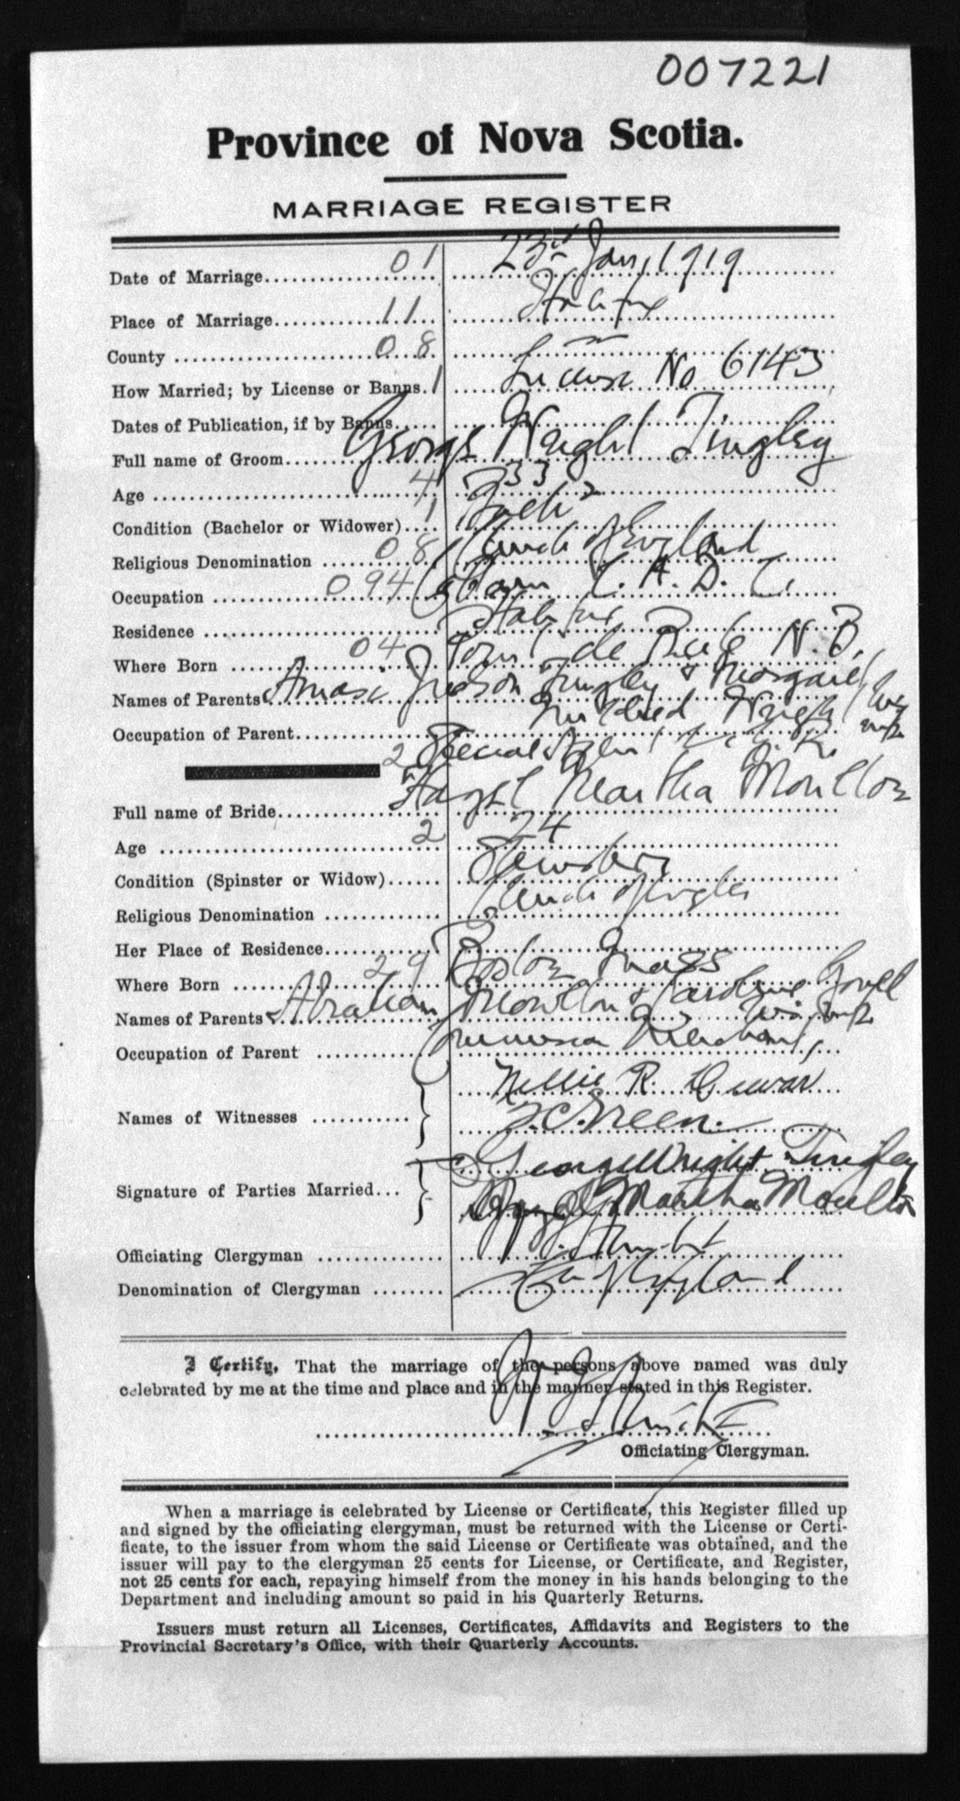 007221
Province of Nova Scotia.
MARRIAGE REGISTER
Date of Marriage 01 23rd Jan, 1919
Place of Marriage 11 Halifax
County 08 "
How Married; by License or Banns. 1 License No 6143
Dates of Publication, if by Banns
Full name of Groom George Wright Tingley
Age 4 33
Condition (Bachelor or Widower) 1 Bach
Religious Denomination 08 Church of England
Occupation 094 C. A. D. C.
Residence Halifax
Where Born 04 Point de Bute N. B.
Names of Parents Amasi Judson Tingley & Margaret
Mildred Wright
Occupation of Parent Special Agent
Full name of Bride Hazel Martha Moulton
Age 2 24
Condition (Spinster or Widow) Spinster
Religious Denomination Church of England
Her Place of Residence
Where Born 29 Boston Mass
Names of Parents Abraham Moulton & Caroline
Occupation of Parent Merchant
Names of Witnesses Nellie R.
Green.
Signature of Parties Married George Wright Tingley
Hazel Martha Moulton
Officiating Clergyman
Denomination of Clergyman Ch of England
I Certify, That the marriage of the persons above named was duly
celebrated by me at the time and place and in the manner stated in this Register.
Officiating Clergyman.
When a marriage is celebrated by License or Certificate, this Register filled up
and signed by the officiating clergyman, must be returned with the License or Certi-
ficate, to the issuer from whom the said License or Certificate was obtained, and the
issuer will pay to the clergyman 25 cents for License, or Certificate, and Register,
not 25 cents for each, repaying himself from the money in his hands belonging to the
Department and including amount so paid in his Quarterly Returns.
Issuers must return all Licenses, Certificates, Affidavits and Registers to the
Provincial Secretary's Office, with their Quarterly Accounts.